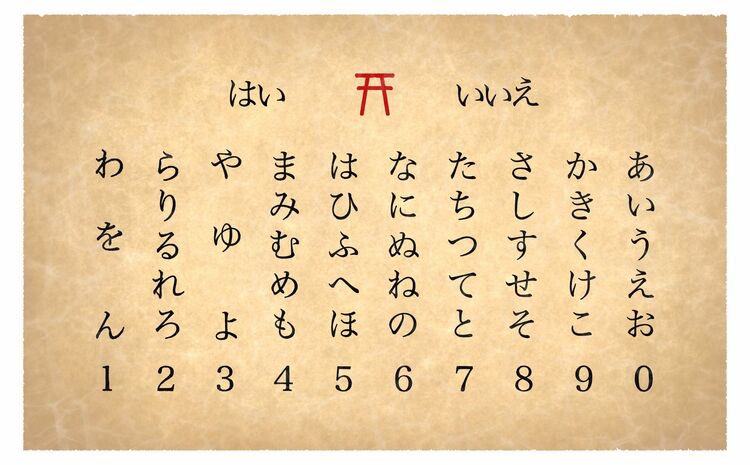 はい
いいえ
あいうえお
かきくけこ
さしすせそ
たちつてと
なにぬねの
はひふへほ
まみむめも
やゆよ
らりるれろ
わをん
1 2 3 4 5 6 7 8 9 0